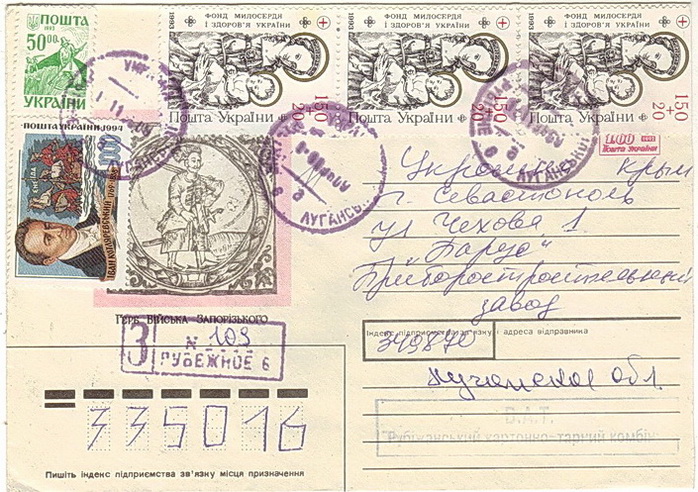 ПОШТА
50.00
УКРАЇНИ
1993
ФОНД МИЛОСЕРДЯ
І ЗДОРОВ'Я УКРАЇНИ
150
+
20
Пошта України
1993
ФОНД МИЛОСЕРДЯ
І ЗДОРОВ'Я УКРАЇНИ
150
+
20
Пошта України
1993
ФОНД МИЛОСЕРДЯ
І ЗДОРОВ'Я УКРАЇНИ
150
+
20
Пошта України
ПОШТА УКРАЇНИ 1994
ІВАН КОТЛЯРЕВСЬКИЙ
1.00
Пошта України
ЛУГАНСЬКОЇ
Украина Крым
г. Севастополь
ул Чехова 1
"Парус"
Приборостроительный
завод
Герб Війська Запорізького
Індекс підприємства зв'язку і адреса відправника
349870
Луганская обл.
З
N 103
РУБЕЖНОЕ 6
В.А.Т.
Рубіжанський картонно-тарний комбінат
335016
Пишіть індекс підприємства зв'язку місця призначення